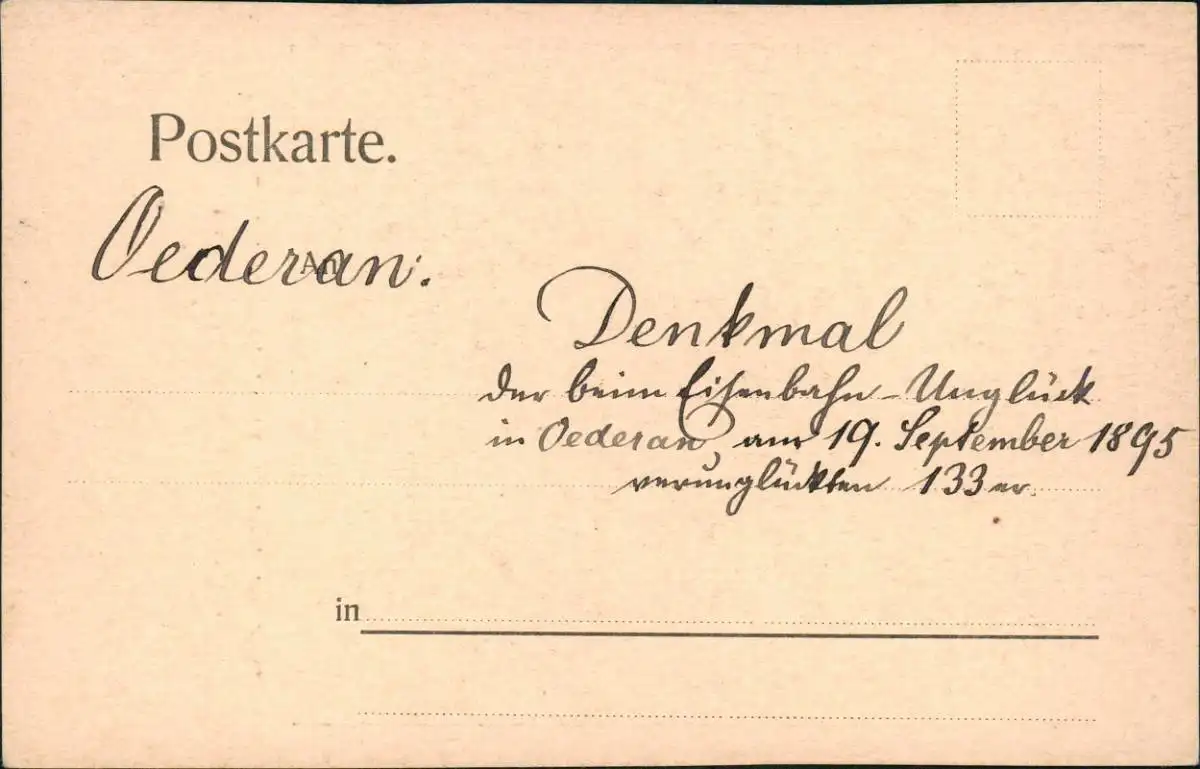 Postkarte.
Oederan.
An
Denkmal
der beim Eisenbahn-Unglück
in Oederan, am 19. September 1895
verunglückten 133er.
in